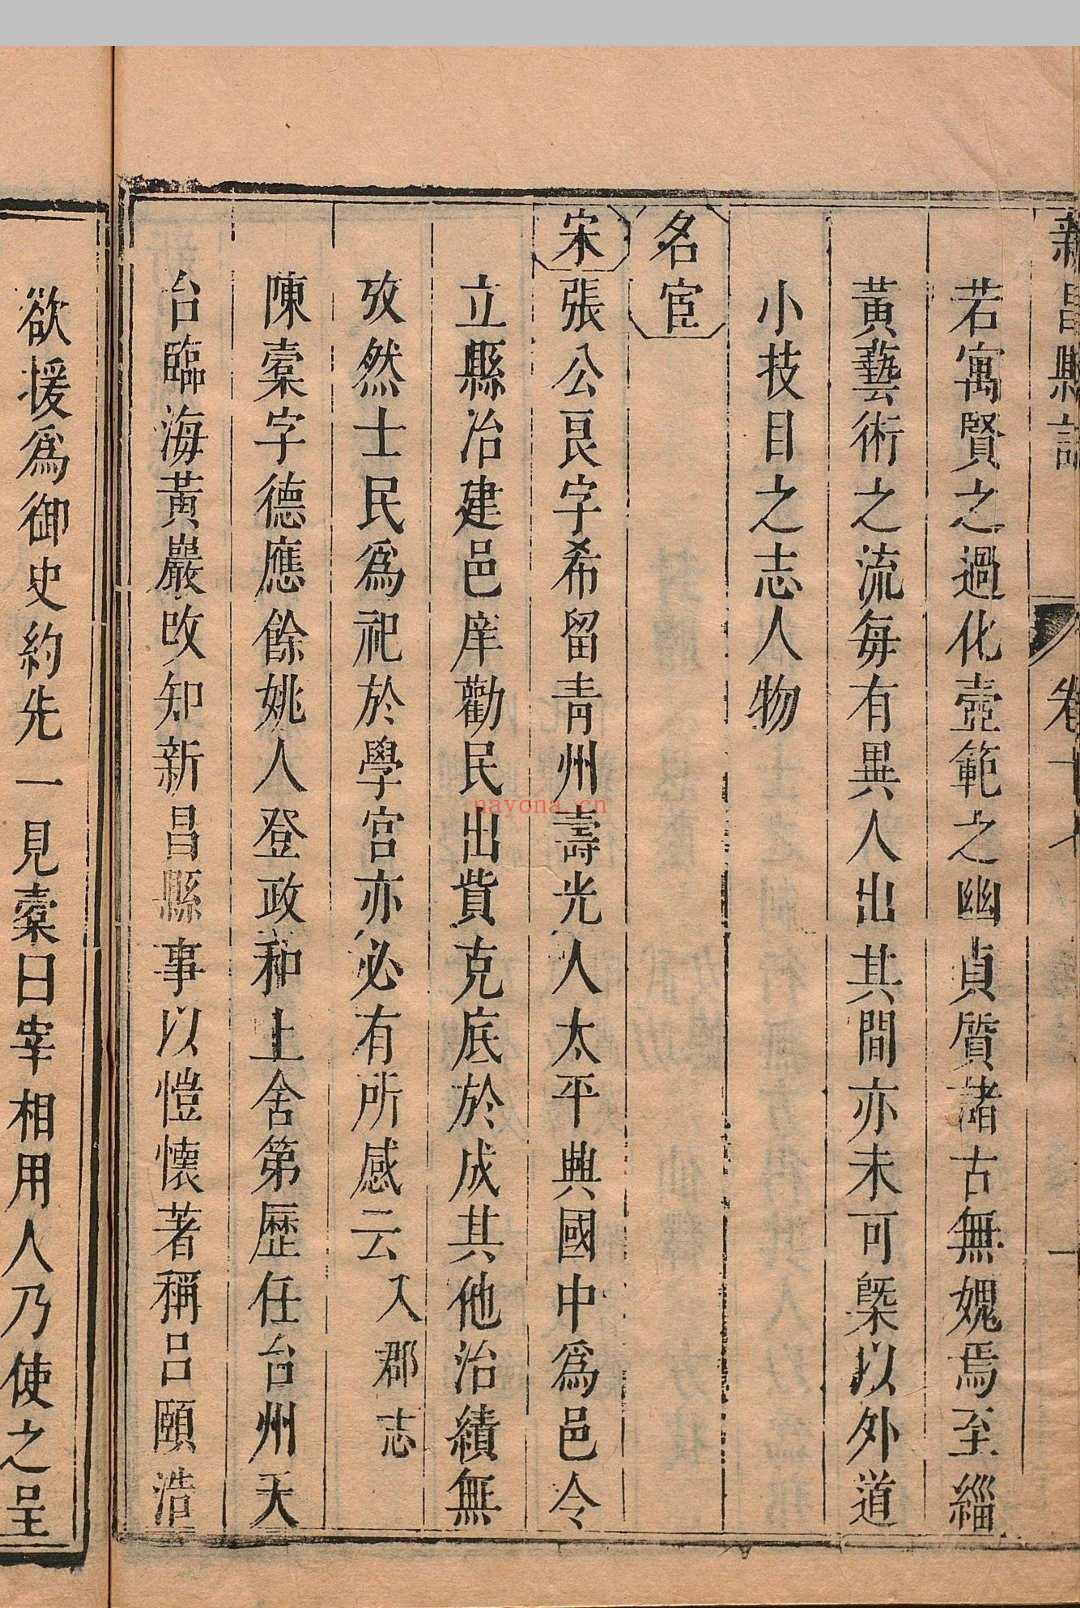 新昌縣誌 卷十七
若寓賢之過化壼範之幽貞質諸古無媿焉至緇
黃藝術之流每有異人出其間亦未可槩以外道
小技目之志人物
名宦
宋 張公良字希留青州壽光人太平興國中為邑令
立縣治建邑庠勸民出貲克底於成其他治績無
攷然士民為祀於學宮亦必有所感云 入郡志
陳橐字德應餘姚人登政和上舍第歷任台州天
台臨海黃巖改知新昌縣事以愷悌著稱呂頤浩
欲援為御史約先一見橐曰宰相用人乃使之呈
nayona.cn